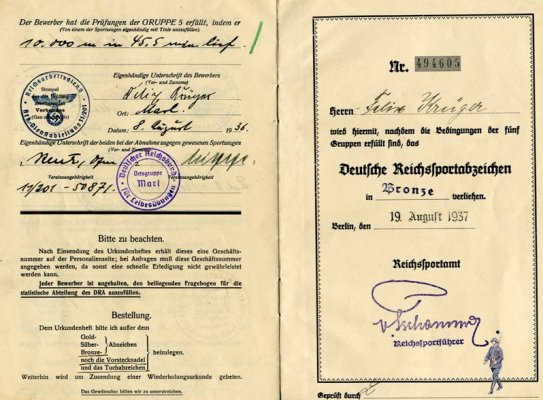 Der Bewerber hat die Prüfungen der GRUPPE 5 erfüllt, indem er
(Von einem der Sportzeugen eigenhändig mit Tinte auszufüllen)
10.000 m in 45,5 min. lief.
Eigenhändige Unterschrift des Bewerbers
(Vor- und Zuname)
Stempel
Felix Krüger
Ort: Marl
Datum: 8. August 1936.
Eigenhändige Unterschrift der beiden bei der Abnahme zugegen gewesenen Sportzeugen
(Vor- und Zuname)
Vereinsangehörigkeit
Vereinsangehörigkeit
11/201 - 50871.
Deutscher Reichsbund
Ortsgruppe
Marl
für Leibesübungen
Bitte zu beachten.
Nach Einsendung des Urkundenheftes erhält dieses eine Geschäfts-
nummer auf der Personalienseite; bei Anfragen muß diese Geschäftsnummer
angegeben werden, da sonst eine schnelle Erledigung nicht gewährleistet
werden kann.
Jeder Bewerber ist angehalten, den beiliegenden Fragebogen für die
statistische Abteilung des DRA auszufüllen.
Bestellung.
Dem Urkundenheft bitte ich außer dem
Gold-
Silber- Abzeichen
Bronze-
beizulegen.
noch die Vorstecknadel
und das Tuchabzeichen
Weiterhin wird um Zusendung einer Wiederholungsurkunde gebeten.
Das Gewünschte bitten wir zu unterstreichen.
Nr. 494605
Herrn Felix Krüger
wird hiermit, nachdem die Bedingungen der fünf
Gruppen erfüllt sind, das
Deutsche Reichssportabzeichen
in Bronze verliehen.
Berlin, den 19. August 1937
Reichssportamt
Reichssportführer
Geprüft durch